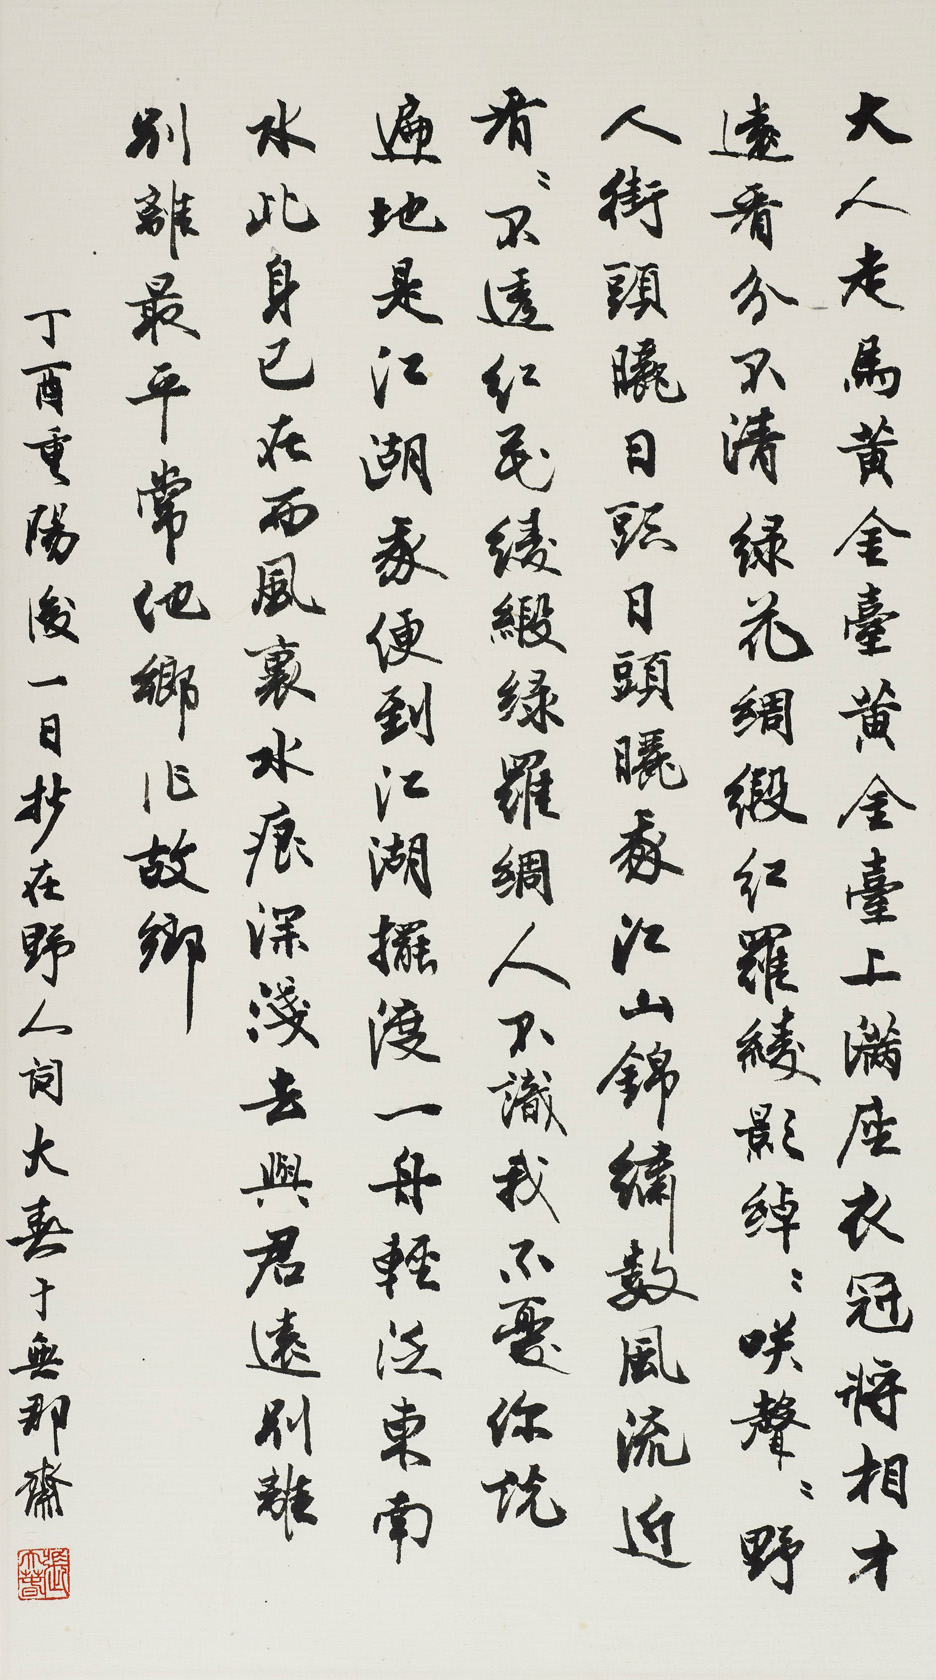 大人走馬黄金臺黄金臺上满座衣冠將相才
遠看分不清绿花綢緞紅羅綾影綽〻咲聲〻野
人街頭曬日頭日頭曬我江山錦繡數風流近
看〻不透紅花綾緞绿羅綢人不識我不憂你説
遍地是江湖我便到江湖擺渡一舟輕泛東南
水此身已在西風裏水痕深淺去與君遠別離
別離最平常他鄉作故鄉
丁酉重陽後一日抄在野人词大春于無那齋